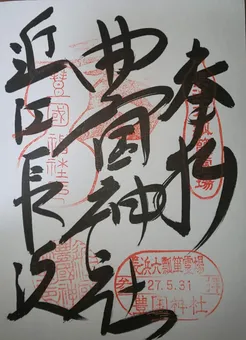 奉拝
豊国神社
近江長浜
長浜大瓢箪霊場
27.5.31
豊国神社